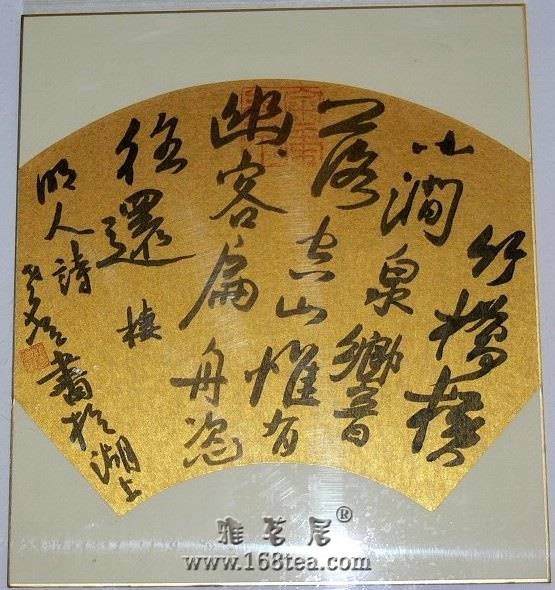 竹橋橫
小澗泉響
落空山惟有
幽客扁舟恣
往還 棲
明人詩
書於湖上
雅茗居®
www.168tea.com